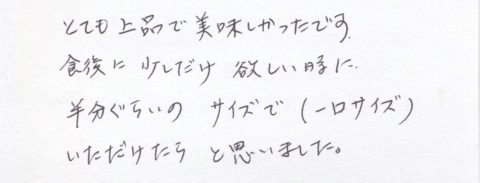 とても上品で美味しかったです
食後に 少しだけ 欲しい時に
半分ぐらいの サイズで (一口サイズ)
いただけたら と思いました。